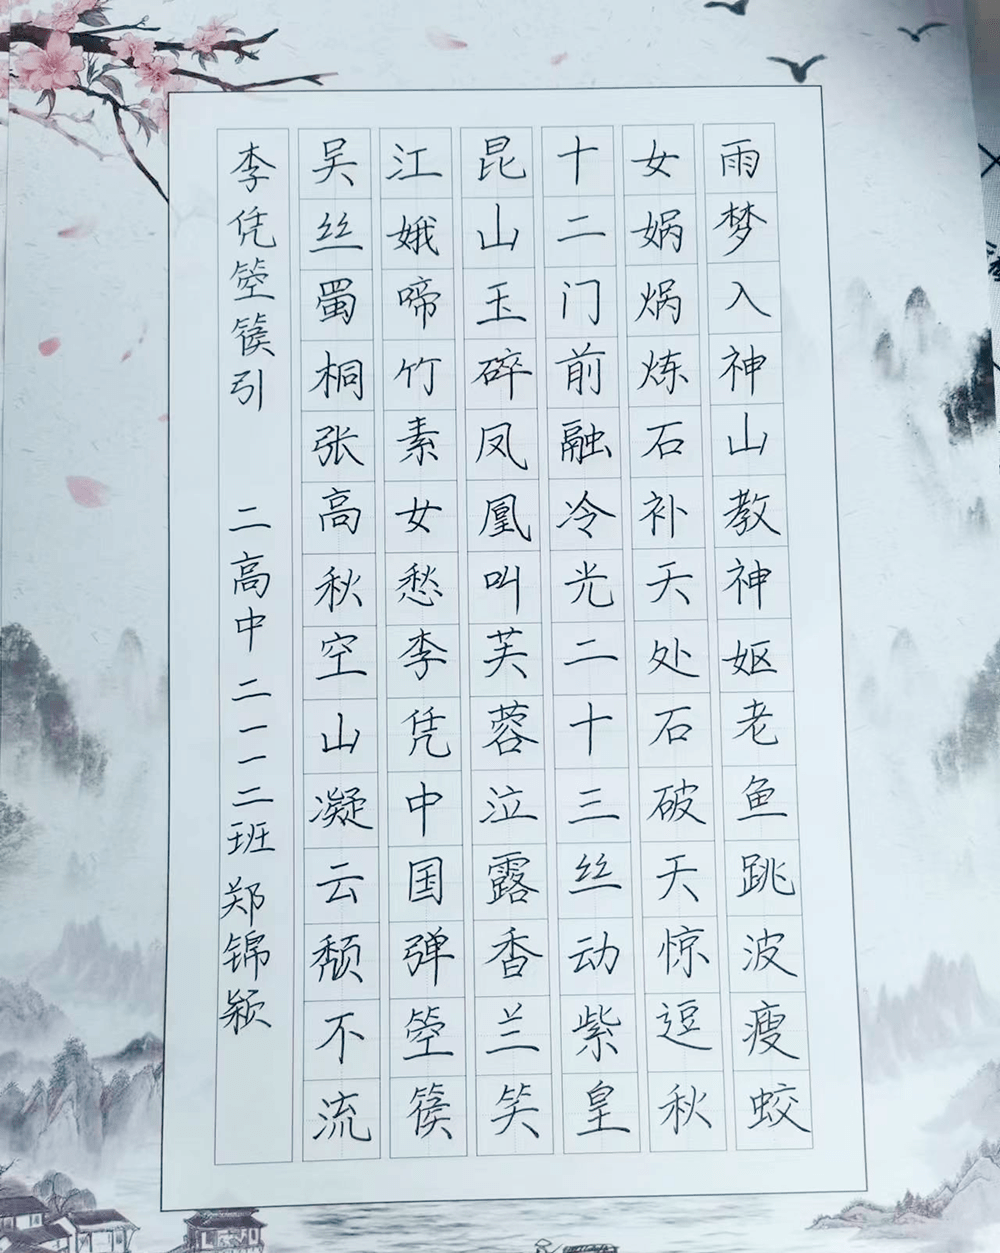 李凭箜篌引 二高中 二一一二班 郑锦颖
吴丝蜀桐张高秋空山凝云颓不流
江娥啼竹素女愁李凭中国弹箜篌
昆山玉碎凤凰叫芙蓉泣露香兰笑
十二门前融冷光二十三丝动紫皇
女娲𬊈炼石补天处石破天惊逗秋
雨梦入神山教神妪老鱼跳波瘦蛟